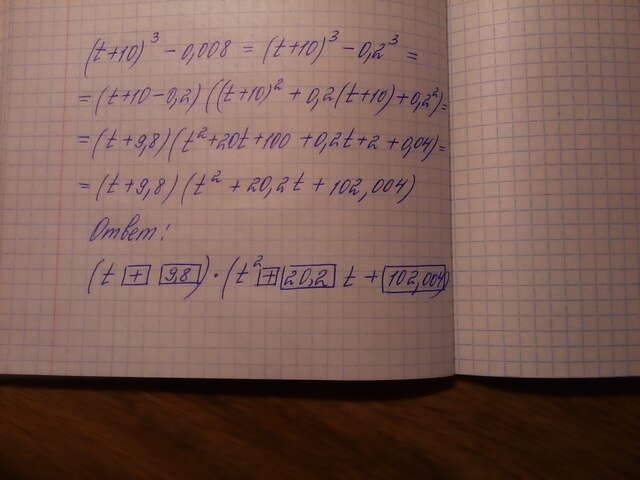 (t+10)³ - 0,008 = (t+10)³ - 0,2³ =
= (t+10-0,2) ((t+10)² + 0,2(t+10)+0,2²)=
= (t+9,8) (t²+20t+100 +0,2t+2 +0,04)=
= (t+9,8) (t² + 20,2t + 102,004)
Ответ:
(t + 9,8) · (t² + 20,2 t + 102,004)